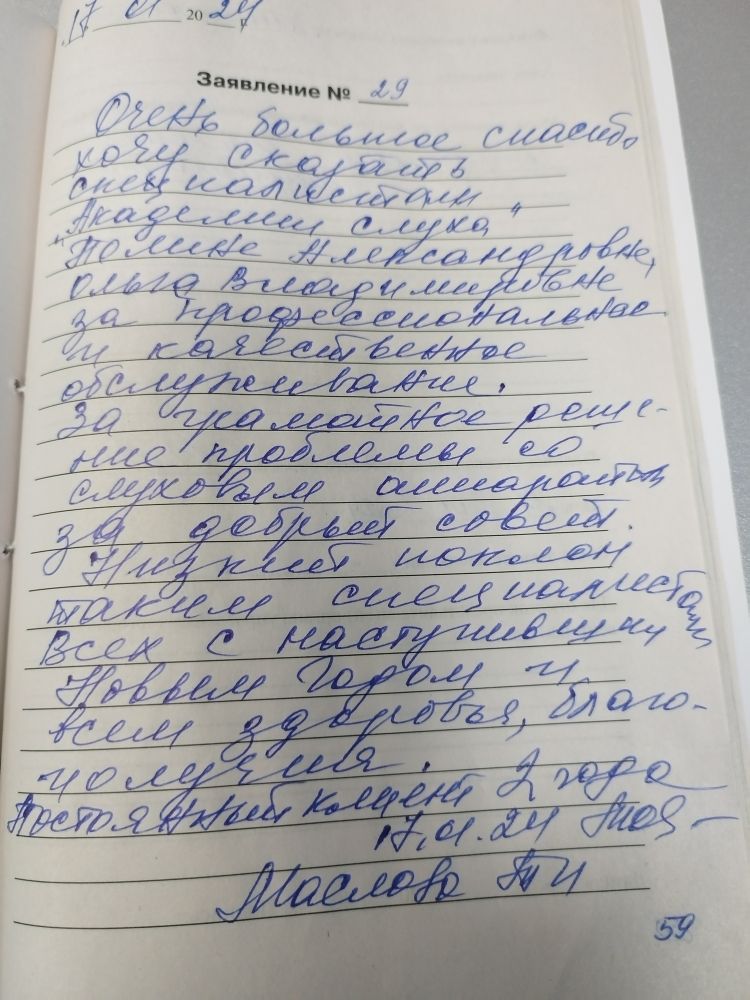 17 01 2024 г.
Заявление № 29
Очень большое спасибо
хочу сказать
специалистам
"Академии слуха"
Полине Александровне,
Ольга Владимировне
за профессиональное
и качественное
обслуживание.
За грамотное реше-
ние проблемы со
слуховым аппаратом
за добрый совет.
Низкий поклон
таким специалистам
Всех с наступившим
Новым Годом и
всем здоровья, благо-
получия.
Постоянный клиент 2 года
17.01.24
Маслова ТИ
59